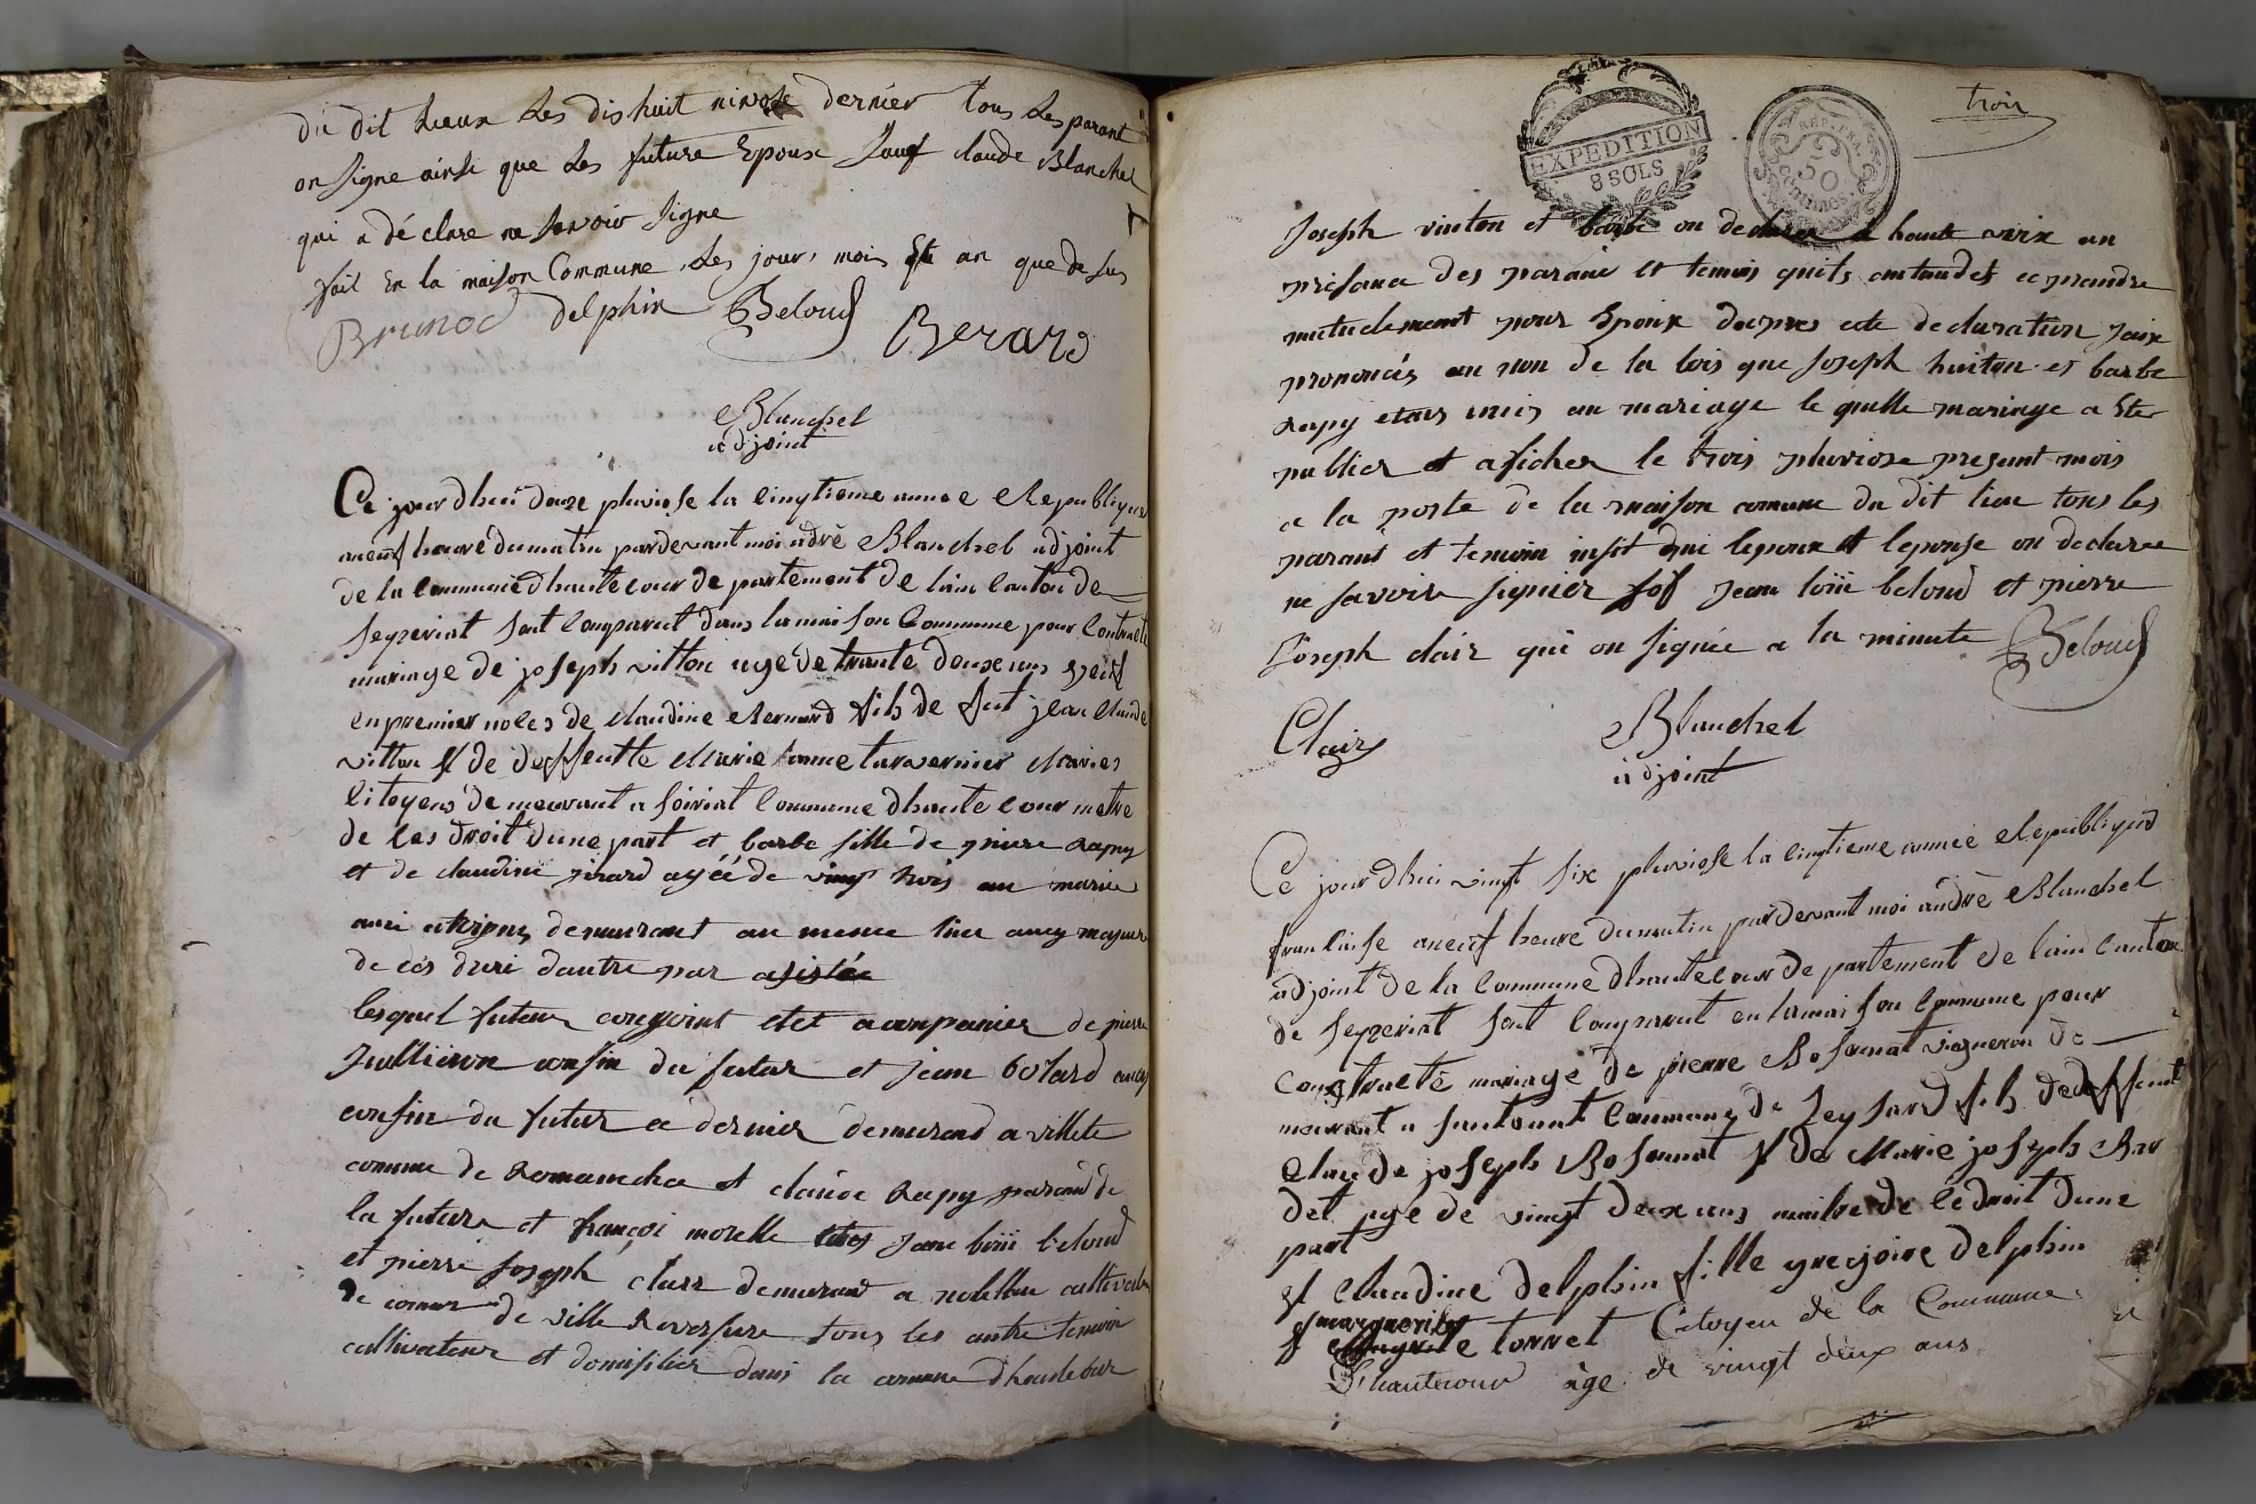 du dit Lieux Les dis huit nivose dernier tous Les parant
on signe ainsi que Les future Epoux Sauf claude Blanchet
qui a déclare ne savoir signe
fait En la maison Commune Les jour mois Et an que de sus
Brunod delphin Beloud Berard
Blanchet
adjoint
Ce jour dhui douze pluviose la cinqtieme annee Republique
aneuf heure dumatin pardevant moi adrè Blanchet adjoint
de la Commune dhautecour departement de lain canton de
seyzeriat sont Comparut dans lamaison Commune pour Contracte
mariage de joseph vitton age de trante deux ans veuf
en premier noces de claudine Bernard fils de fut jean claude
vitton & de deffeutte Marie anne tavernier Maries
Citoyens demeurant a soiriat Commune dhautecour metre
de ces droit dune part et barbe fille de pierre rapy
et de claudine girard agée de vingt trois an mariés
ausi citoyens demeurant au meme lieu ausy majeure
de cés drui dautre par asistée
lesquel futeur conjoint etet acompanier de pierre
Jullieron cousin du futur et jean botard ausy
cousin du futur ce dernier demurend a villete
comune de Romaneche et claude rapy parand de
la future et françoi morelle Jean loüi beloud
et pierre Joseph clair demurant a noblens cultivateur
de comune de ville Reversure tous les autre temoin
cultivateur et domisilier dans la comune dhautecour
EXPEDITION
8 SOLS
REP. FRA.
50
CENTIMES
trois
Joseph vinton et barbe on declarer a haute voix an
presance des parant et temoin quils entandet ce prandre
mutuelement pour Epoux daprés cete declaration jaix
prononcés au non de la lois que Joseph huiton et barbe
rapy etais unis an mariage le quelle mariage a Eter
publier et aficher le trois pluviose presant mois
a la porte de la maison comune du dit lieu tous les
parans et temoin insit qui lepoux et lepouse on declaree
ne savoir signier sof Jean loüi beloud et pierre
Joseph clair qui on signée a la minute Beloud
Clair
Blanchet
adjoint
Ce jour dhui vingt six pluviose la cinqtieme année Republiqud
francaise aneuf heure dumatin pardevant moi andrè Blanchet
adjoint de la Commune dhautecour departement de lain Canton
de seyzeriat sont Comparut en lamaison Commune pour
Contracté mariage de pierre Bosonnat vigneron de
meurant a santonat Commune de Leyssard fils de deffeunt
Claude joseph Bosonnat & de Marie joseph Bar
det age de vingt deux ans maitre de cédroit dune
part
et Claudine Delphin fille gregoire Delphin
& marguerite tornet Citoyen de la Commune
d'hautecour àge de vingt deux ans